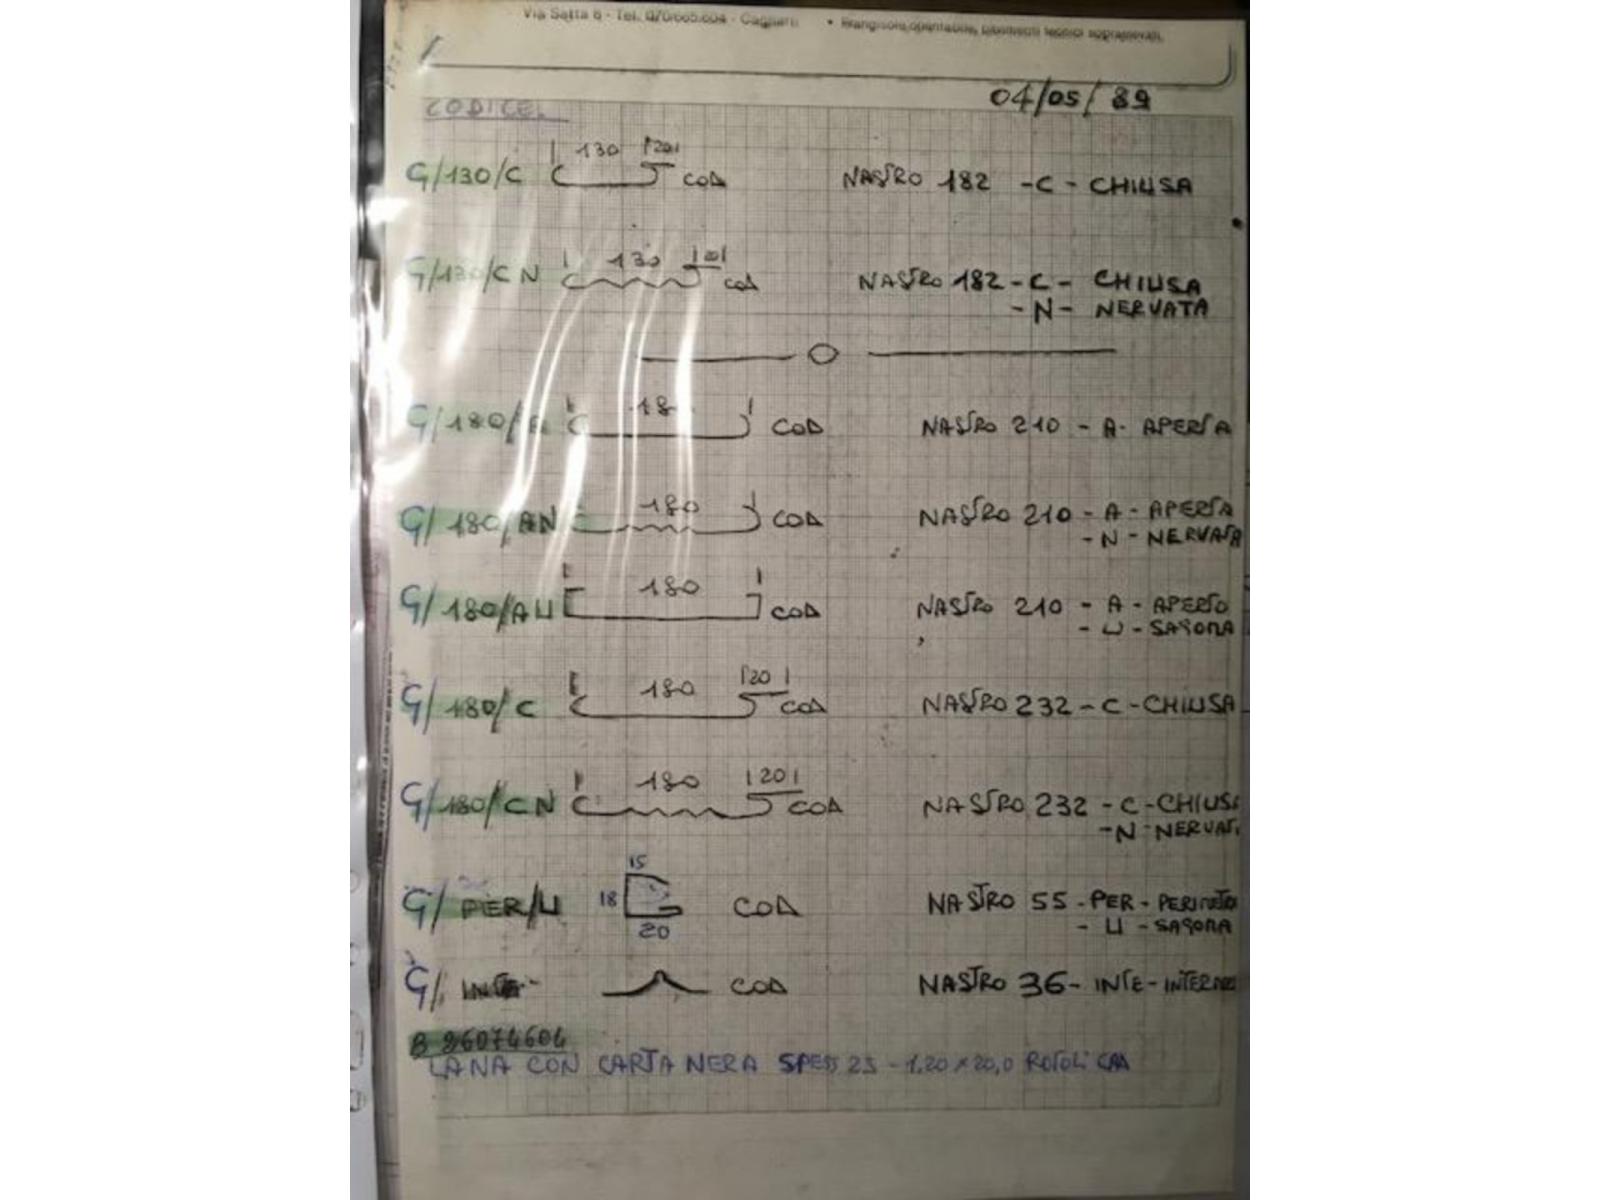 Via Satta 6 - Tel. 070/665.604 - Cagliari • Frangisole orientabile, pavimenti tecnici sopraelevati,
04/05/89
CODICE
G/130/C 130 20 COD NASTRO 182 - C - CHIUSA
G/130/CN 130 20 COD NASTRO 182 - C - CHIUSA
- N - NERVATA
G/180/A 180 COD NASTRO 210 - A - APERTA
G/180/AN 180 COD NASTRO 210 - A - APERTA
- N - NERVATA
G/180/AU 180 COD NASTRO 210 - A - APERTO
- U - SAGOMA
G/180/C 180 20 COD NASTRO 232 - C - CHIUSA
G/180/CN 180 20 COD NASTRO 232 - C - CHIUSA
- N - NERVAT
15
G/PER/U 18 COD NASTRO 55 - PER - PERIMETRO
20 - U - SAGOMA
G/INTE COD NASTRO 36 - INTE - INTERNO
B 86074604
LANA CON CARTA NERA SPESS 25 - 1,20 x 20,0 ROTOLI